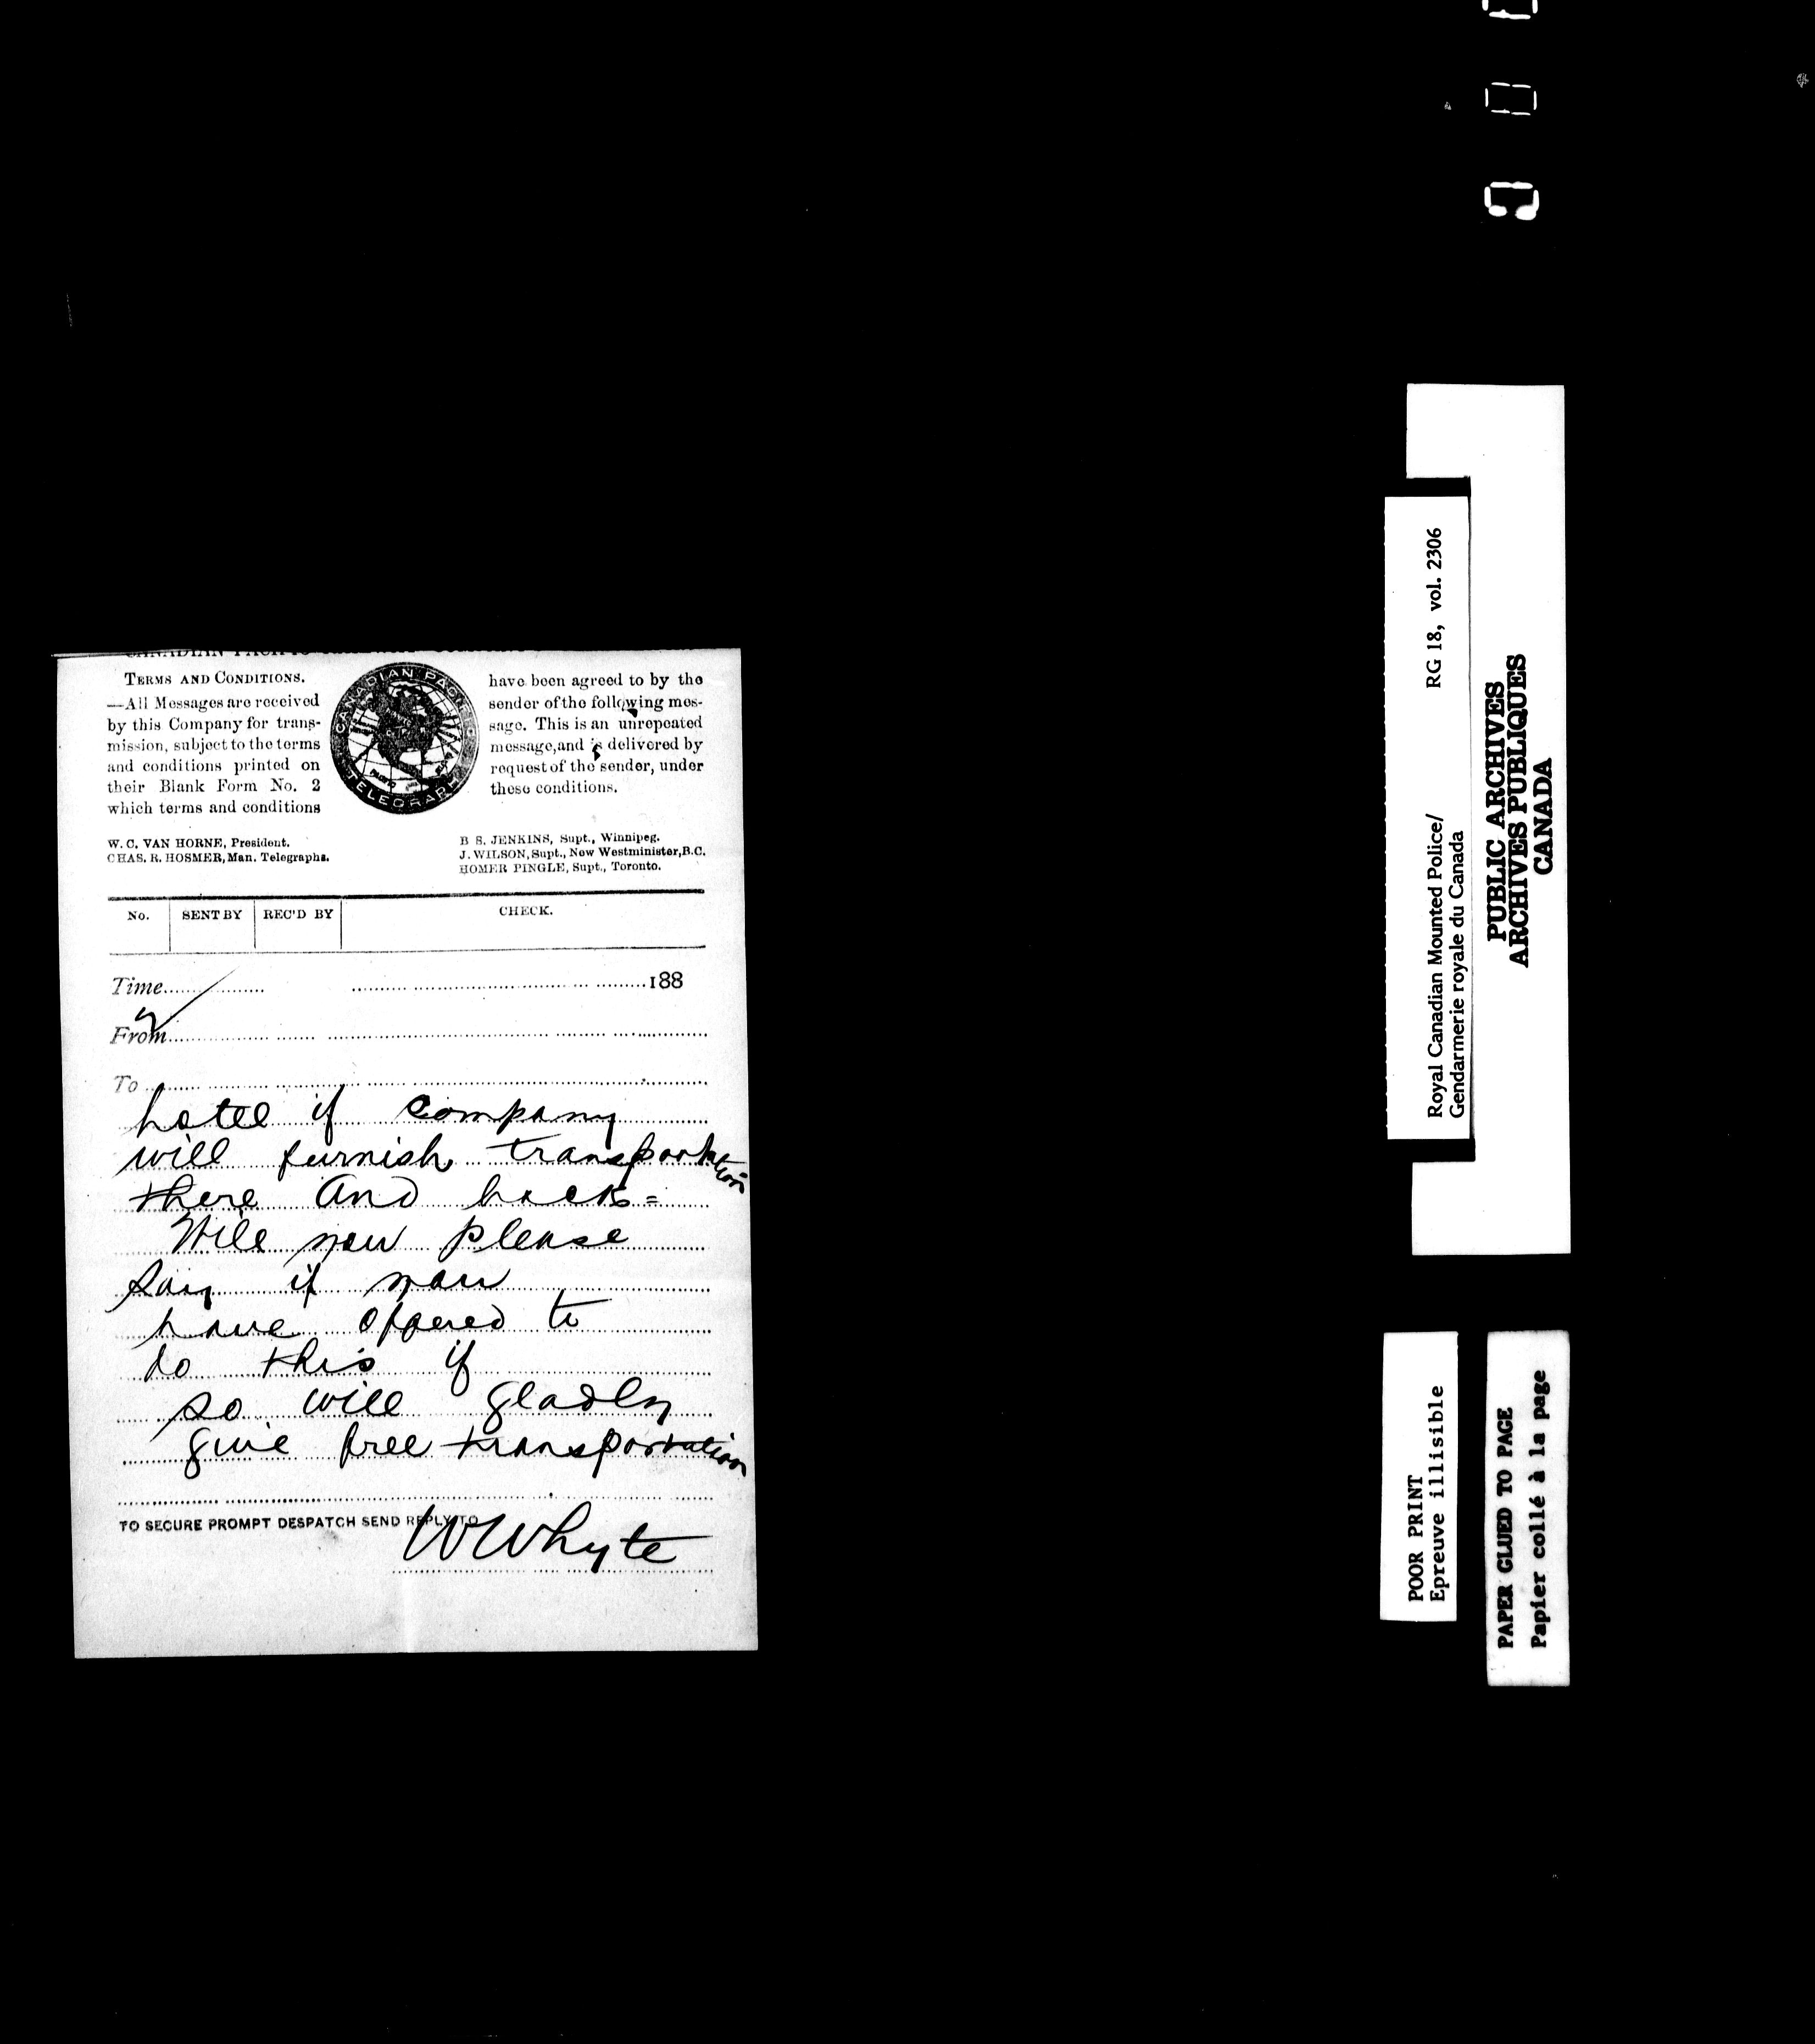 TERMS AND CONDITIONS.
—All Messages are received
by this Company for trans-
mission, subject to the terms
and conditions printed on
their Blank Form No. 2
which terms and conditions
CANADIAN PACIFIC
TELEGRAPH
have been agreed to by the
sender of the following mes-
sage. This is an unrepeated
message, and is delivered by
request of the sender, under
these conditions.
W. C. VAN HORNE, President.
CHAS. R. HOSMER, Man. Telegraphs.
B. S. JENKINS, Supt., Winnipeg.
J. WILSON, Supt., New Westminister, B.C.
HOMER PINGLE, Supt., Toronto.
No. SENT BY REC'D BY CHECK.
Time 188
From
To
hotel if company
will furnish transportation
there and back =
Will you please
say if you
have offered to
do this if
so will gladly
give free transportation
TO SECURE PROMPT DESPATCH SEND REPLY TO
W Whyte
Royal Canadian Mounted Police/ RG 18, vol. 2306
Gendarmerie royale du Canada
PUBLIC ARCHIVES
ARCHIVES PUBLIQUES
CANADA
POOR PRINT
Epreuve illisible
PAPER GLUED TO PAGE
Papier collé à la page